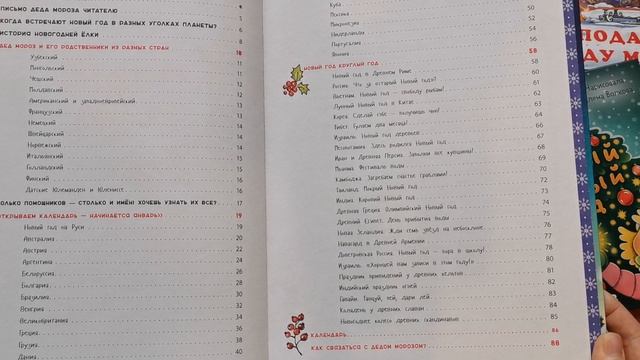 ПИСЬМО ДЕДА МОРОЗА ЧИТАТЕЛЮ
КОГДА ВСТРЕЧАЮТ НОВЫЙ ГОД В РАЗНЫХ УГОЛКАХ ПЛАНЕТЫ? 6
ИСТОРИЯ НОВОГОДНЕЙ ЁЛКИ
ДЕД МОРОЗ И ЕГО РОДСТВЕННИКИ ИЗ РАЗНЫХ СТРАН 10
Узбекский 11
Монгольский 11
Чешский 12
Американский и западноевропейский 12
Французский 13
Немецкий 14
Швейцарский 14
Норвежский 14
Итальянский 15
Голландский 15
Финский 16
Датские Юлеманден и Юлениссе 16
СТОЛЬКО ПОМОЩНИКОВ — СТОЛЬКО И ИМЁН! ХОЧЕШЬ УЗНАТЬ ИХ ВСЕ? 17
ОТКРЫВАЕМ КАЛЕНДАРЬ — НАЧИНАЕТСЯ ЯНВАРЬ 19
Новый год на Руси 19
Австралия 20
Австрия 22
Аргентина 24
Белоруссия 26
Болгария 28
Бразилия 30
Венгрия 32
Великобритания 34
Греция 36
Грузия 38
Дания 40
Куба 50
Мексика 52
Микронезия 54
Нидерланды 54
Португалия 56
Япония 58
НОВЫЙ ГОД КРУГЛЫЙ ГОД 58
Новый год в Древнем Риме 58
Россия. Что за старый Новый год? 60
Вьетнам. Новый год — свободу рыбам! 61
Лунный Новый год в Китае 62
Корея. Сделай себе — получишь 63
Тибет. Гуляем два месяца! 64
Израиль. Новый год деревьев 66
Месопотамия. Здесь родился Новый год 67
Иран и Древняя Персия. Запылили все кувшины! 68
Мьянма. Фестиваль воды 69
Камбоджа. Загребаем счастье граблями! 70
Таиланд. Мокрый Новый год 72
Индия. Коровий Новый год 73
Древняя Греция. Олимпийский Новый год 74
Древний Египет. День прибытия воды 75
Новая Зеландия. Ждём семь звёзд на небосклоне 76
Навасард в Древней Армении 77
Допетровская Россия. Новый год — пора в школу! 78
Израиль. «Хорошей нам записи в этом году!» 79
Праздник привидений у древних кельтов 81
Индийский праздник огней 82
Гавайи. Танцуй, пей, дари лей 83
Коляды у древних славян 84
Новогоднее колесо древних скандинавов 85
КАЛЕНДАРЬ 86
КАК СВЯЗАТЬСЯ С ДЕДОМ МОРОЗОМ? 88
ПОДА
ДУ М
Нарисовала